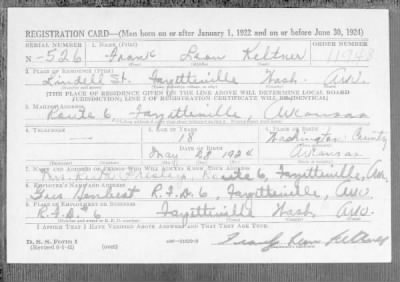 REGISTRATION CARD—(Men born on or after January 1, 1922 and on or before June 30, 1924)
SERIAL NUMBER 1. NAME (Print) ORDER NUMBER
N-526 Frank Leon Keltner 11948
2. PLACE OF RESIDENCE (Print)
Lindell St. Fayetteville Wash. Ark.
[THE PLACE OF RESIDENCE GIVEN ON THE LINE ABOVE WILL DETERMINE LOCAL BOARD
JURISDICTION; LINE 2 OF REGISTRATION CERTIFICATE WILL BE IDENTICAL]
3. MAILING ADDRESS
Route 6 Fayetteville Arkansas
4. TELEPHONE 5. AGE IN YEARS 6. PLACE OF BIRTH
18 Washington County
DATE OF BIRTH
May 28 1924 Arkansas
7. NAME AND ADDRESS OF PERSON WHO WILL ALWAYS KNOW YOUR ADDRESS
Route 6, Fayetteville, Ark.
8. EMPLOYER'S NAME AND ADDRESS
R.F.D. 6, Fayetteville, Ark
9. PLACE OF EMPLOYMENT OR BUSINESS
R.F.D. #6 Fayetteville Wash Ark.
I AFFIRM THAT I HAVE VERIFIED ABOVE ANSWERS AND THAT THEY ARE TRUE.
D. S. S. Form 1 (over) Frank Leon Keltner